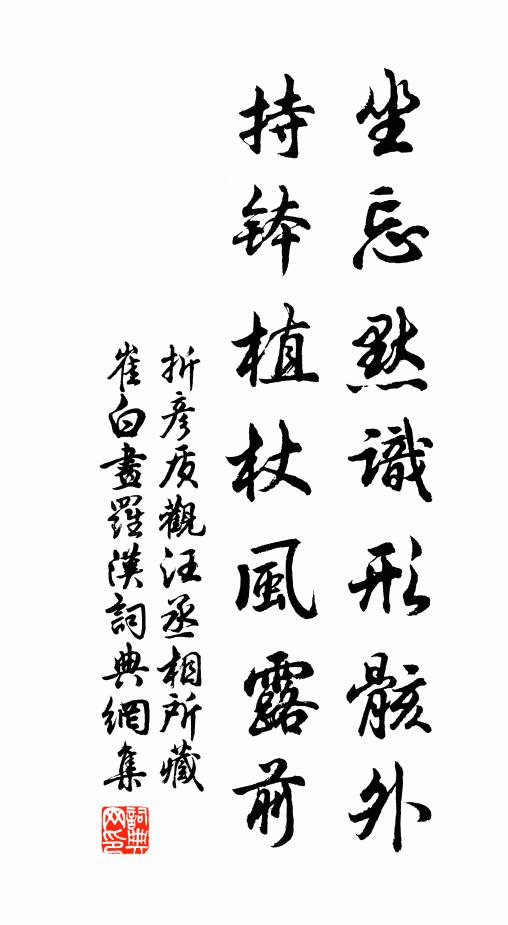 坐忘默識形骸外
持鉢植杖風露前
折彥质觀汪丞相所藏
崔白畫羅漢詞典網集
詞典
网印